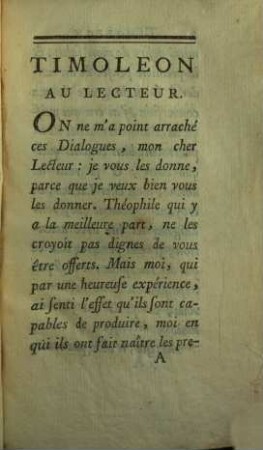 TIMOLEON
AU LECTEUR.
ON ne m'a point arraché
ces Dialogues, mon cher
Lecteur : je vous les donne,
parce que je veux bien vous
les donner. Théophile qui y
a la meilleure part, ne les
croyoit pas dignes de vous
être offerts. Mais moi, qui
par une heureuse expérience,
ai senti l'effet qu'ils sont ca-
pables de produire, moi en
qui ils ont fait naître les pre-
A